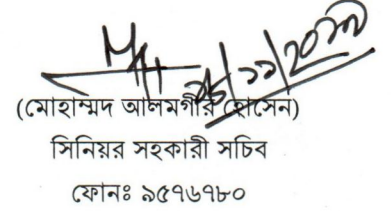 (মোহাম্মদ আলমগীর হোসেন)
সিনিয়র সহকারী সচিব
ফোনঃ ৯৫৭৬৭৮০